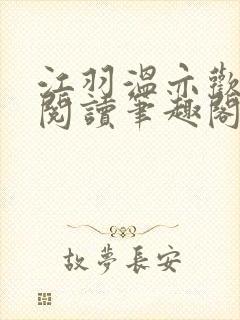 江羽溫亦歡
閱讀筆趣閣
故夢長安